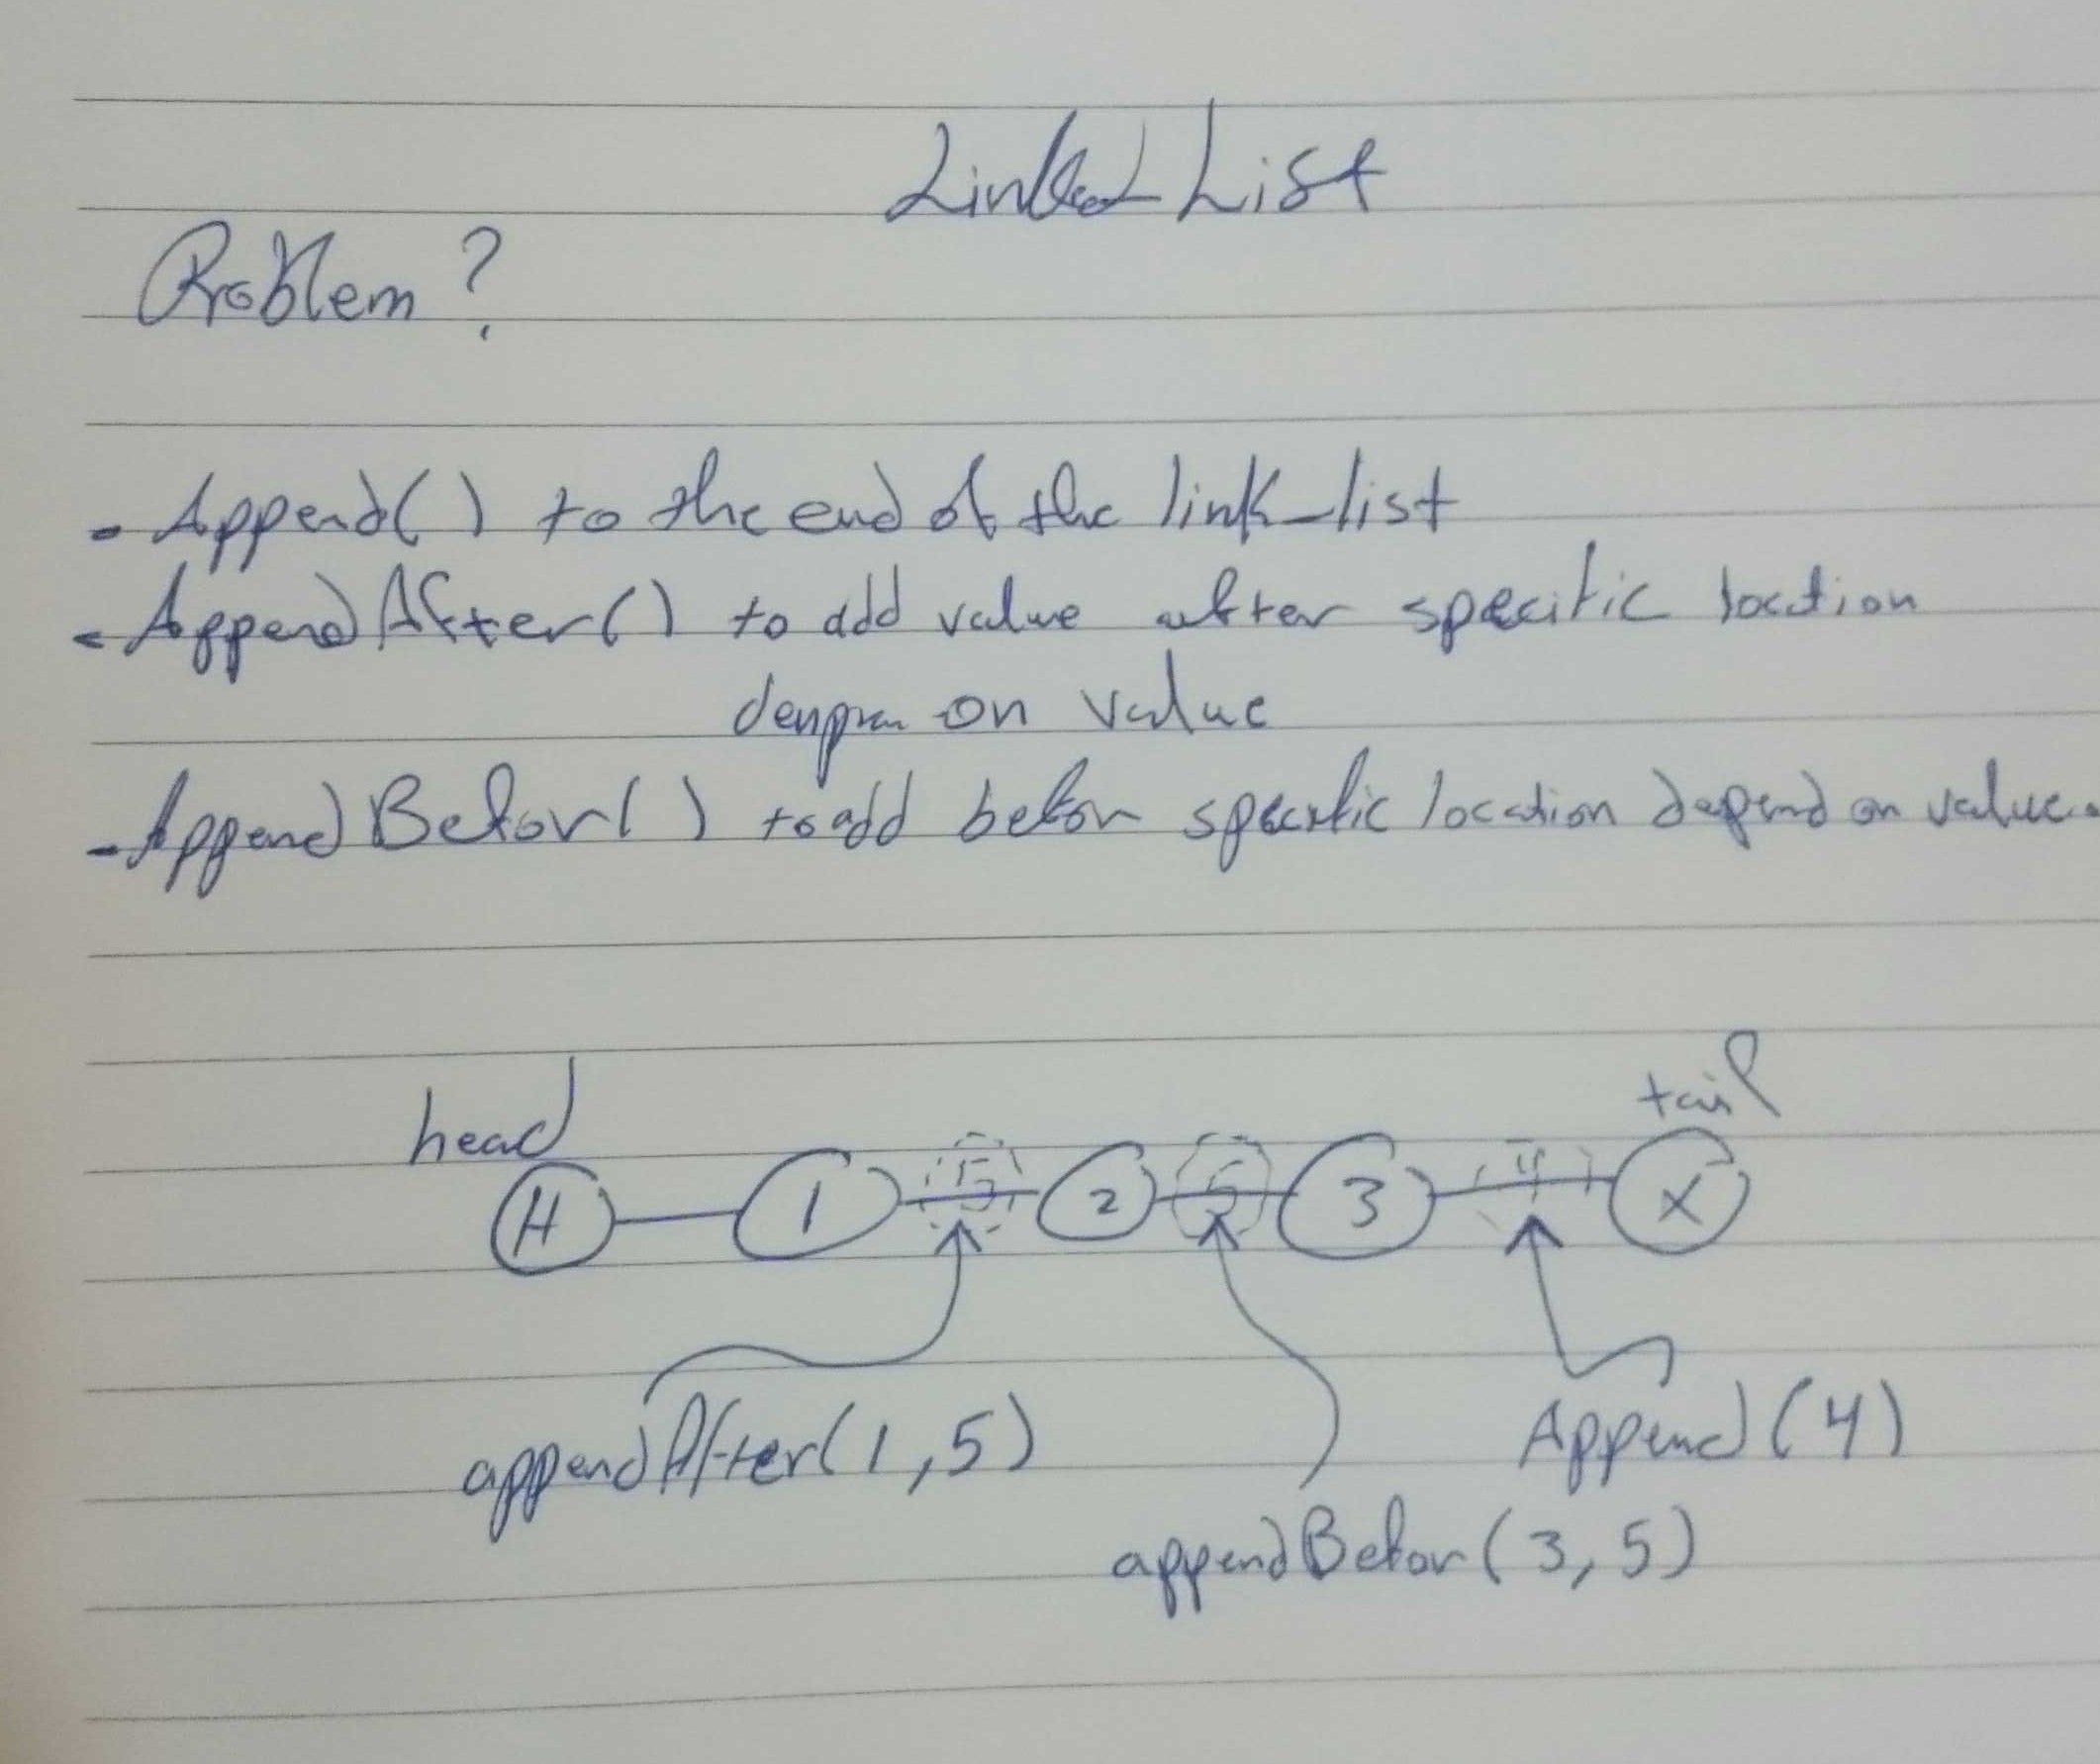 Linked List
Problem ?
- Append( ) to the end of the link-list
- AppendAfter( ) to add value after specific location
on value
- AppendBefor( ) to add befor specific location depend on value.
head
tail
H 1 5 2 5 3 4 X
appendAfter(1,5)
Append(4)
appendBefor(3,5)